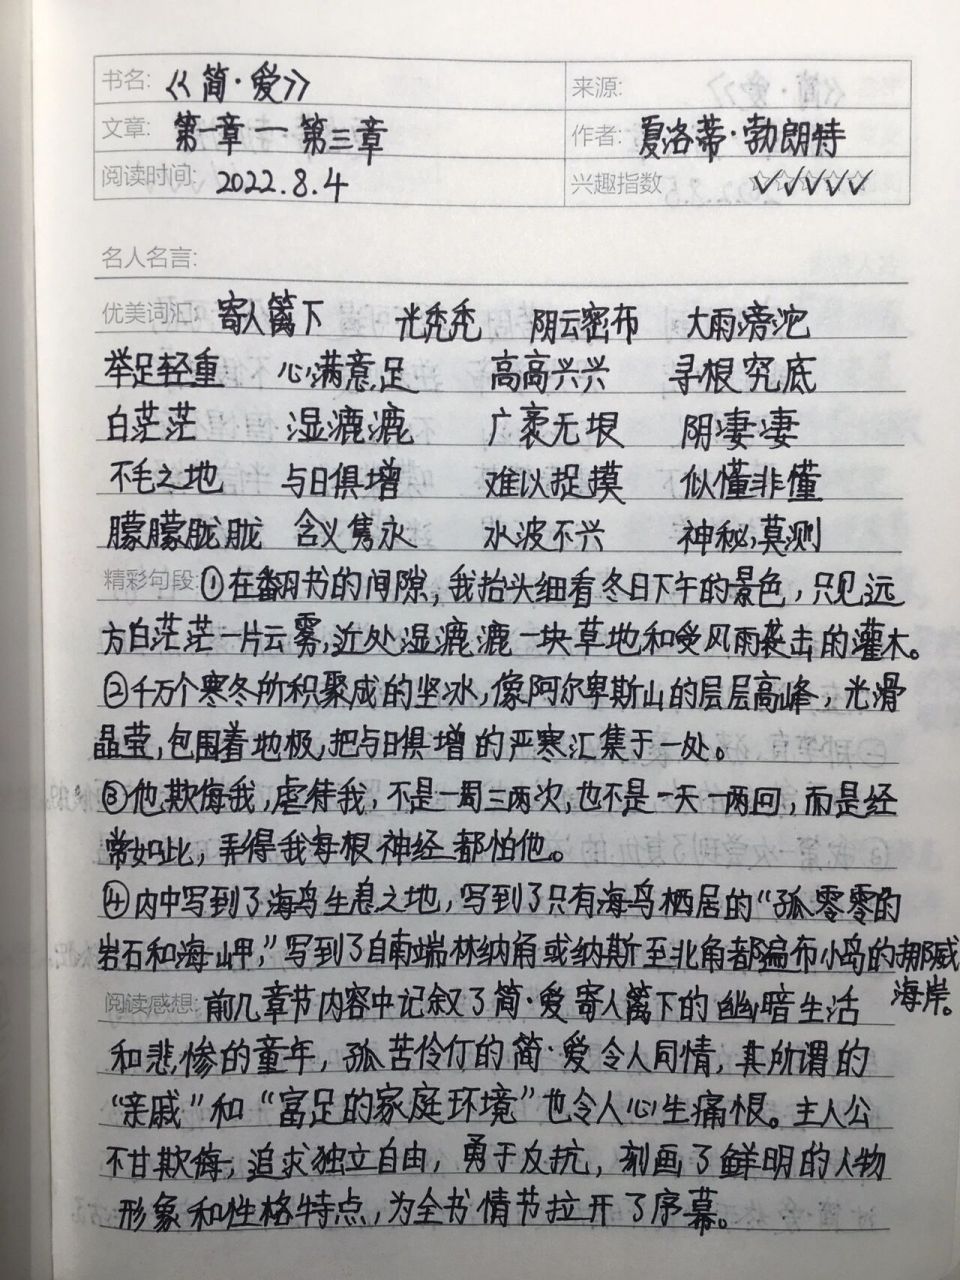 书名: 《简·爱》 来源:
文章: 第一章一第三章 作者: 夏洛蒂·勃朗特
阅读时间: 2022.8.4 兴趣指数 ✓✓✓✓✓
名人名言:
优美词汇: 寄人篱下 光秃秃 阴云密布 大雨滂沱
举足轻重 心满意足 高高兴兴 寻根究底
白茫茫 湿漉漉 广袤无垠 阴凄凄
不毛之地 与日俱增 难以捉摸 似懂非懂
朦朦胧胧 含义隽永 水波不兴 神秘莫测
精彩句段: ①在翻书的间隙,我抬头细看冬日下午的景色,只见远
方白茫茫一片云雾,近处湿漉漉一块草地和受风雨袭击的灌木。
②千万个寒冬所积聚成的坚冰,像阿尔卑斯山的层层高峰,光滑
晶莹,包围着地极,把与日俱增的严寒汇集于一处。
③他欺侮我,虐待我,不是一周三两次,也不是一天一两回,而是经
常如此,弄得我每根神经都怕他。
④内中写到了海鸟生息之地,写到了只有海鸟栖居的“孤零零的
岩石和海岬,”写到了自南端林纳角或纳斯至北角都遍布小岛的挪威
海岸。
阅读感想: 前几章节内容中记叙了简·爱寄人篱下的幽暗生活
和悲惨的童年,孤苦伶仃的简·爱令人同情,其所谓的
“亲戚”和“富足的家庭环境”也令人心生痛恨。主人公
不甘欺侮,追求独立自由,勇于反抗,刻画了鲜明的人物
形象和性格特点,为全书情节拉开了序幕。